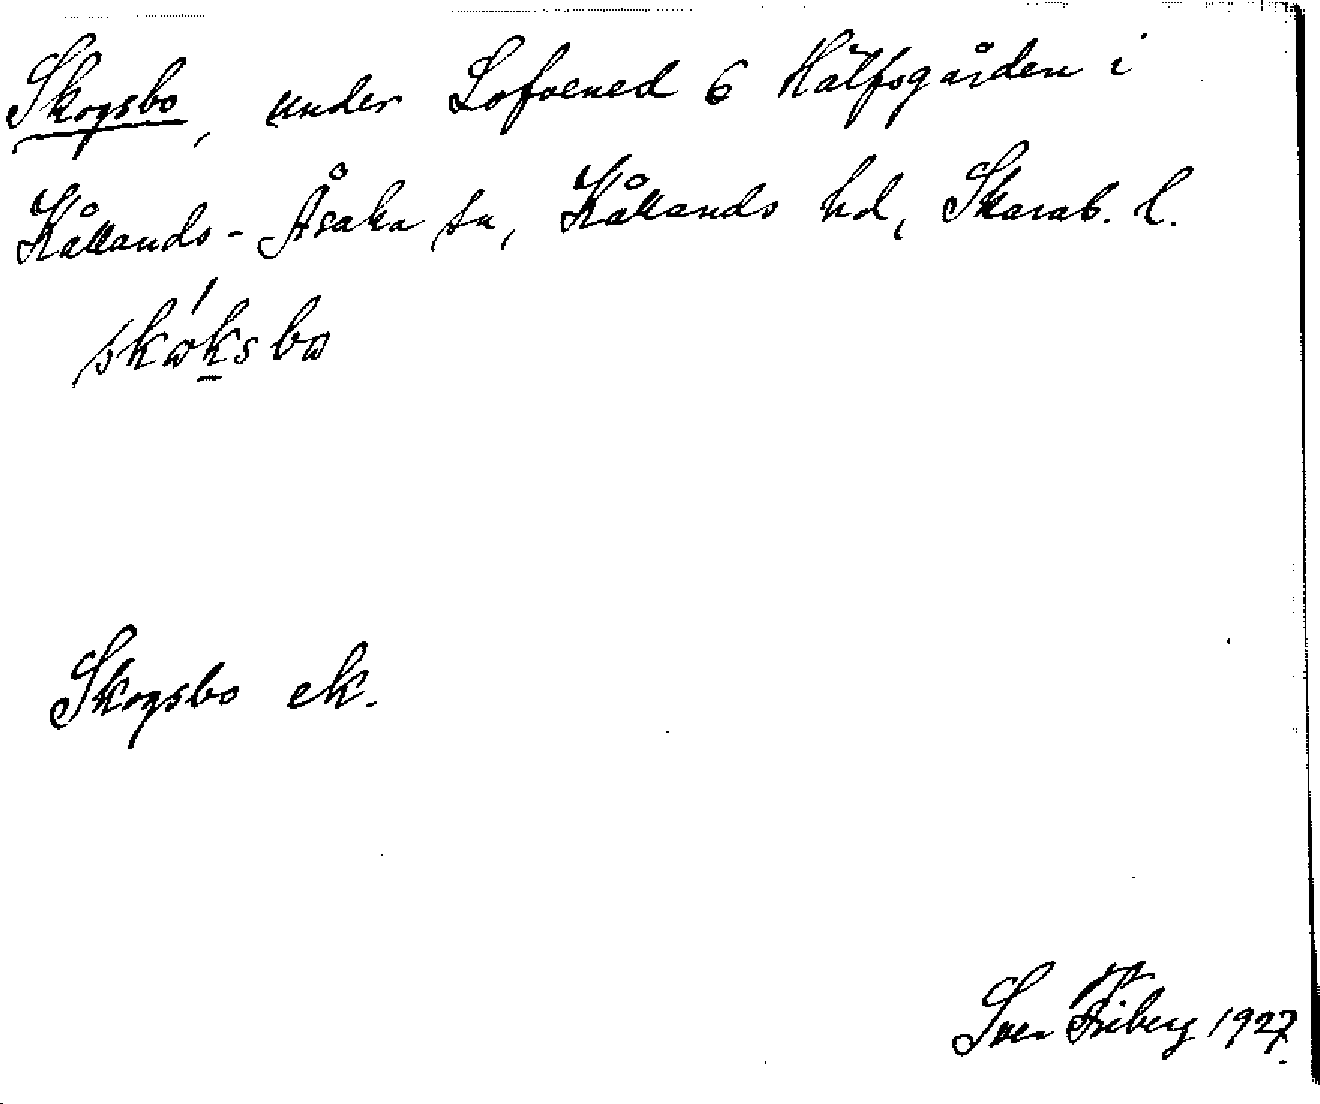 Skogsbo, under Lofvened 6 Halfsgården i
Kållands-Åsaka sn, Kållands hd, Skarab. l.
skoksbo
Skogsbo ek.
Sven Friberg 1927.